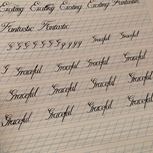 Exciting Exciting Exciting Exciting Fantastic
Fantastic Fantastic
G G G G G G g g g g Graceful Graceful
G Graceful Graceful Graceful Graceful
Graceful Graceful Graceful Graceful
Graceful Graceful Graceful Graceful